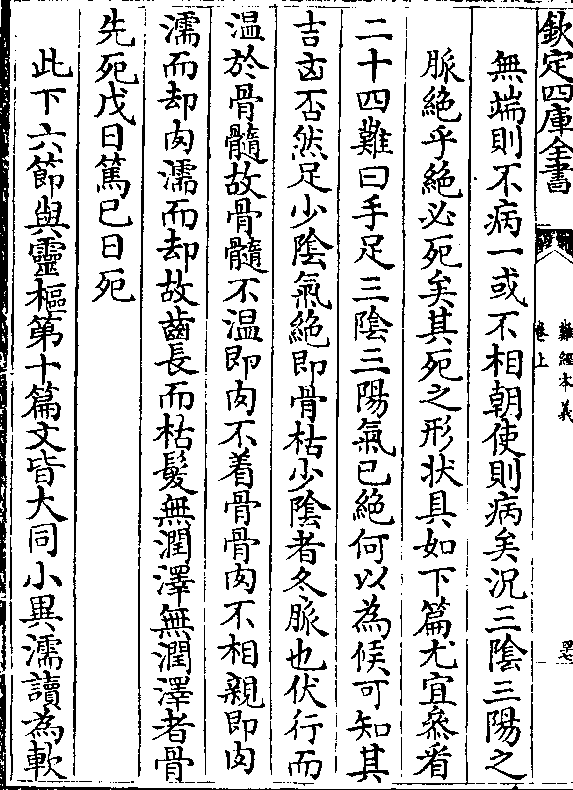 欽定四庫全書
難經本義
卷上
無端則不病一或不相朝使則病矣況三陰三陽之
脈絶乎絶必死矣其死之形狀具如下篇尤宜叅看
二十四難曰手足三陰三陽氣已絶何以為候可知其
吉凶否然足少陰氣絶即骨枯少陰者冬脈也伏行而
温於骨髓故骨髓不温即肉不着骨骨肉不相親即肉
濡而却肉濡而却故齒長而枯髮無潤澤無潤澤者骨
先死戊日篤己日死
此下六節與靈樞第十篇文皆大同小異濡讀為軟